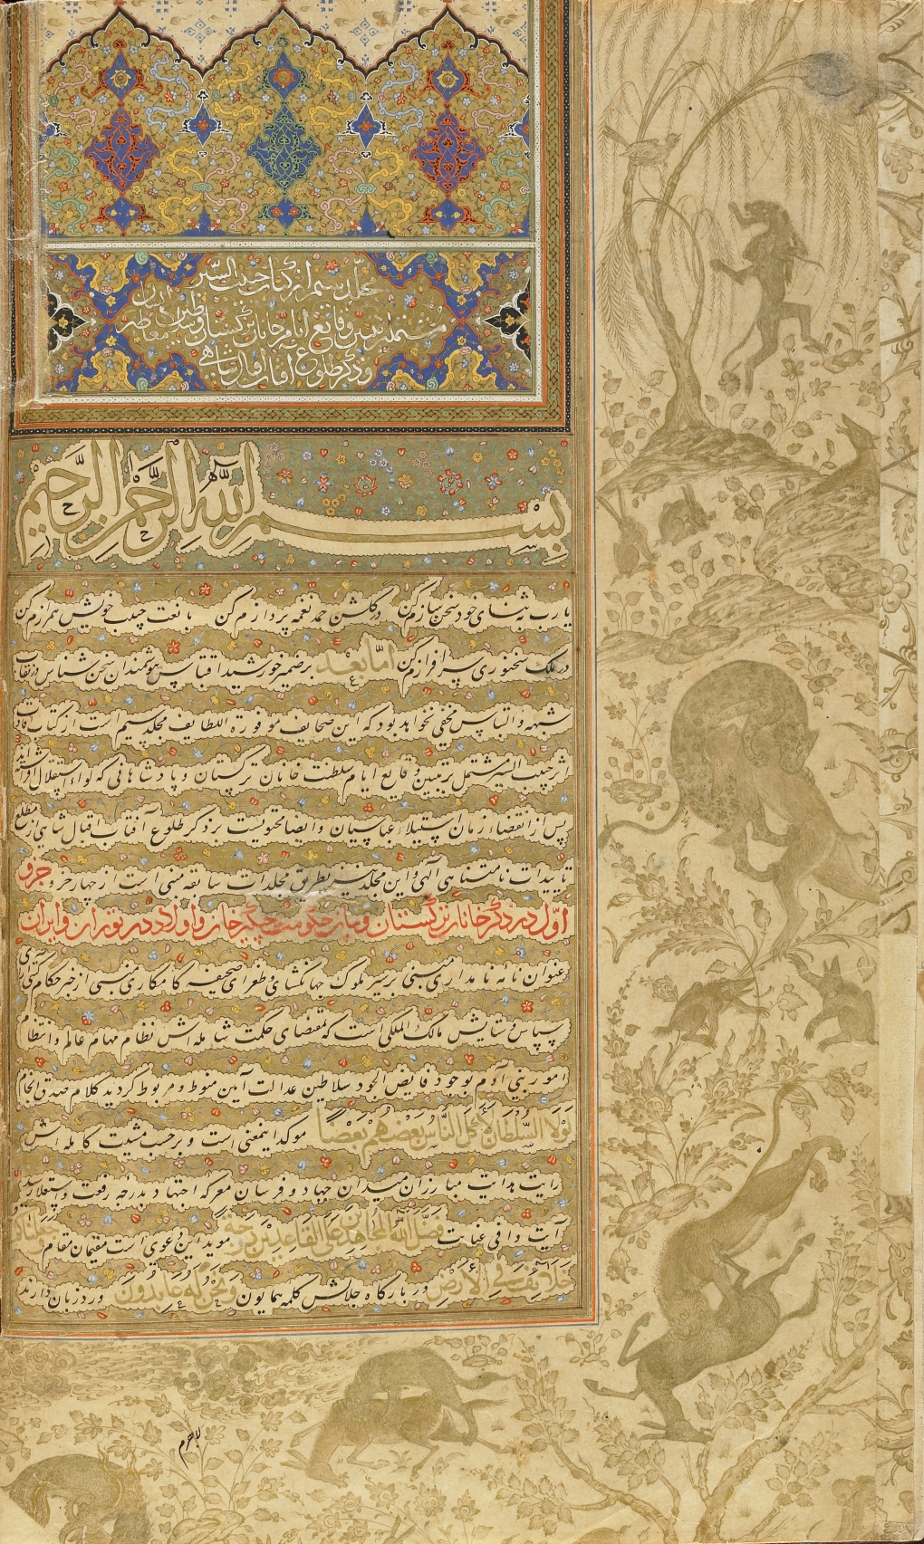 مجلد سیم از کتاب حبیب السیر
مشتمل بر تبیین وقایع ایام خانان ترکستان و پادشاهان
و ذکر طلوع آفتاب اقبال شاهی
بسم الله الرحمن الرحیم
یا رب به ثنای خود سخن سازم کن در گلشن حمد نغمه پردازم کن با نعت حبیب خویش همرازم کن
در ملک سخنوری سرافرازم کن اما بعد بر ضمیر خورشید اقتباس هوشمندان سخن شناس در نقاب
شبهه و التباس مخفی نخواهد بود که این صحایف موفوره اللطایف مجلد سیم است از کتاب افادت
اثر حبیب السیر مشتمل بر تبیین وقایع ایام سلطنت خانان ترکستان و پادشاهانی که لواء استقلال افراشته اند
پس از انقضاء زمان استیلاء عباسیان و ایضا محتویست بر ذکر طلوع آفتاب اقبال شاهی از مطلع
تاییدات نامتناهی الهی و این مجلد نیز بطریق مجلدات سابقه مبنی است از چهار جزو جزو
اول در ذکر خانان ترکستان و بیان حکومت چنگیز خان و اولاد او در توران و ایران
عنوان نامه نامداری مبنی بر سیر ملوک جهانگشای و طغرای صحیفه کامکاری منبی از خبر حکام کشور آرای
سپاس و ستایش مالک الملکی است که مقتضای حکمت شامله اش نظام مهام عالم و انتظام
امور بنی آدم بوجود فایض الجود سلاطین عدالت آیین منوط و مربوط گردید کلام صدق انجام
ولا السلطان لاکل الناس بعضهم بعضا موکد اینمعنی است و بر حسب مشیت کامله اش
رایت هدایت مبارزان میدان جهاد و فرسان معرکه اجتهاد بدرجه رفعت و استعلا رسید
آیت وافی عنایت فضل الله المجاهدین علی القاعدین درجه موید این دعوی است مقیمان مقام جاعلک
خلائف فی الارض در بارگاه جلالش کلمه همایون و نحن له عابدون ورد زبان دارند